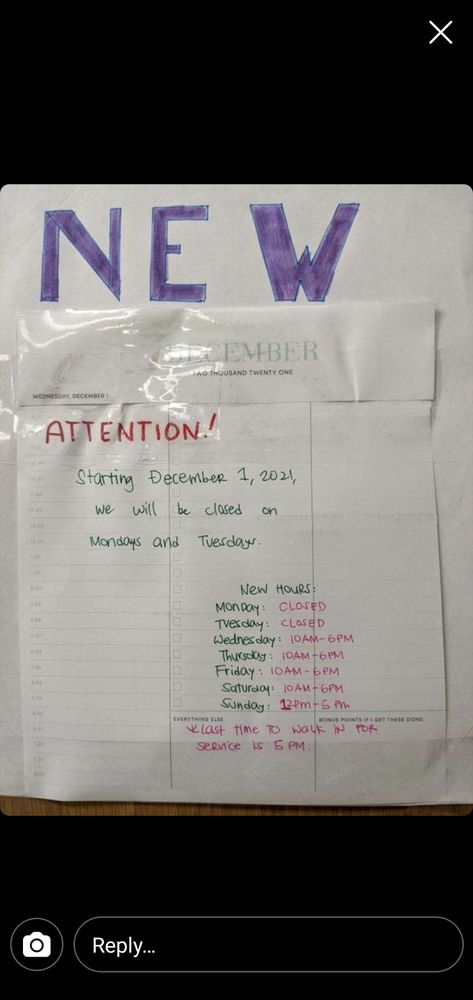 NEW
DECEMBER
TWO THOUSAND TWENTY ONE
WEDNESDAY, DECEMBER 1
ATTENTION!
Starting December 1, 2021,
we will be closed on
Mondays and Tuesdays.
NEW HOURS:
MONDAY: CLOSED
Tuesday: CLOSED
Wednesday: 10AM-6PM
Thursday: 10AM-6PM
Friday: 10AM-6PM
Saturday: 10AM-6PM
Sunday: 12pm-5pm
EVERYTHING ELSE:
BONUS POINTS IF I GET THESE DONE:
*Last time TO walk in FOR
service is 5 PM.
Reply...